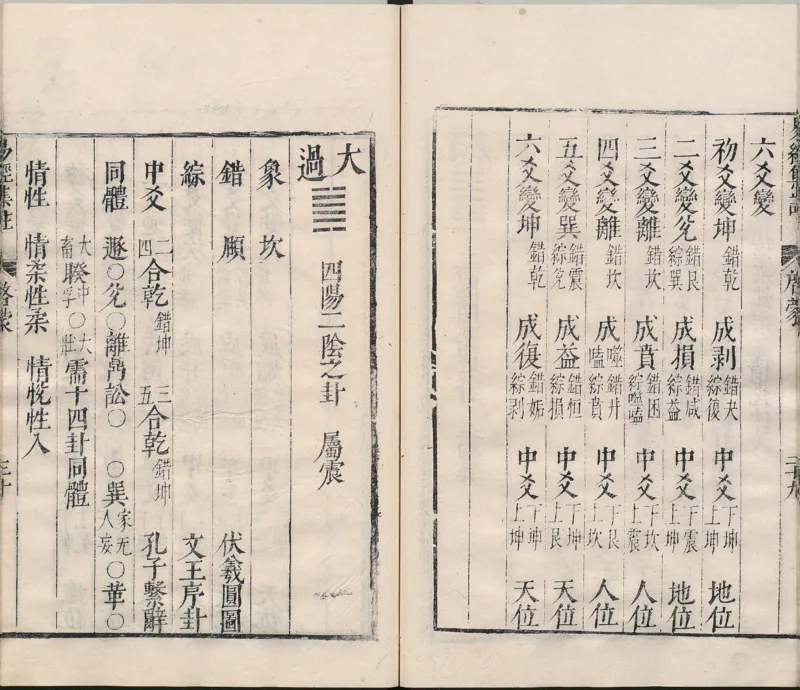 六爻變
初爻變坤 錯乾 成剥 錯夬 綜復 中爻 下坤 上坤 地位
二爻變兌 錯艮 綜巽 成損 錯咸 綜益 中爻 下震 上坤 地位
三爻變離 錯坎 成賁 錯困 綜噬嗑 中爻 下坎 上震 人位
四爻變離 錯坎 成噬嗑 錯井 綜賁 中爻 下艮 上坎 人位
五爻變巽 錯震 綜兌 成益 錯恒 綜損 中爻 下坤 上艮 天位
六爻變坤 錯乾 成復 錯姤 綜剥 中爻 下坤 上坤 天位
啓蒙
二十九
大過 四陽二陰之卦 屬震
象 坎
錯 頤 伏羲圓圖
綜 文王序卦
中爻 二四合乾 錯坤 三五合乾 錯坤 孔子繫辭
同體 遯○兌○離鼎訟○ ○巽家人无妄○革○
大畜睽中孚○大壯需十四卦同體
情性 情柔性柔 情悅性入
易經集註
啓蒙
三十